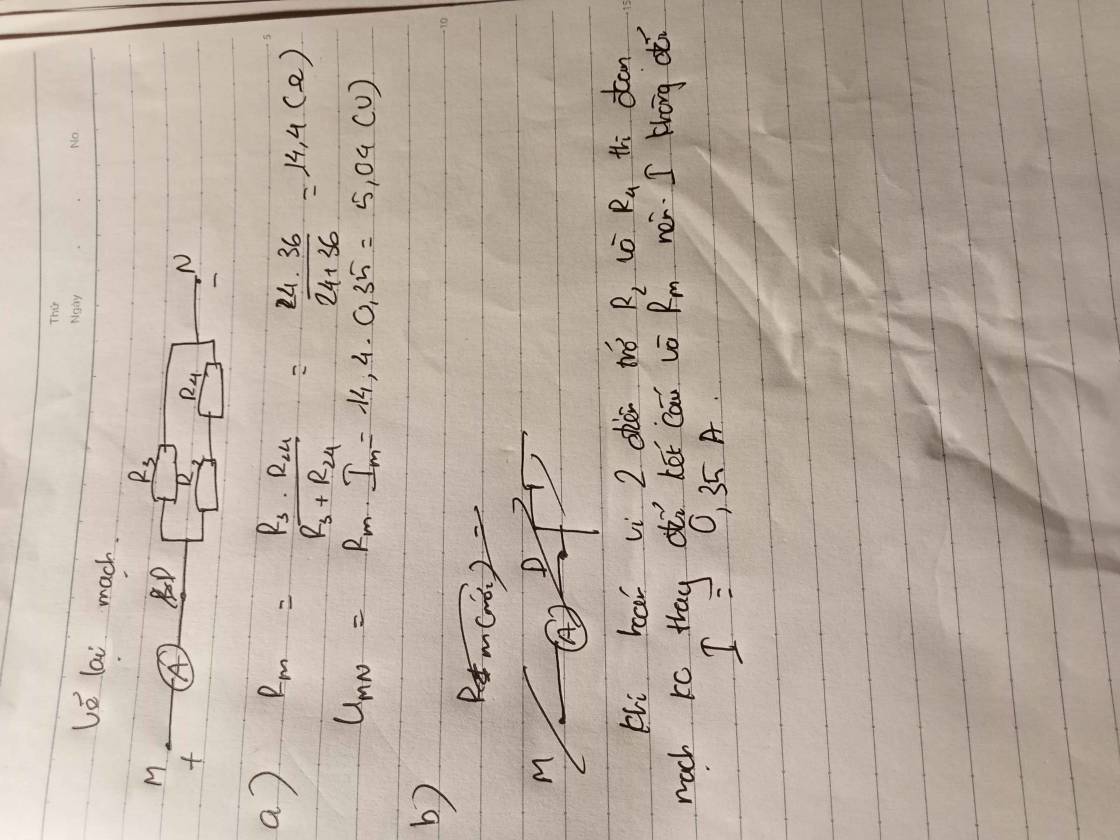 Thứ
Ngày . . No
Vẽ lại mạch.
M A P R3 R2 R4 N
+ -
5
a) Rm = R3 . R24 / R3 + R24 = 24 . 36 / 24 + 36 = 14,4 (Ω)
UMN = Rm . Im = 14,4 . 0,35 = 5,04 (V)
10
b)
M A P
15
Khi hoán vị 2 điện trở R2 và R4 thì đoạn
mạch ko thay đổi kết cấu và Rm nên I không đổi
I = 0,35 A.